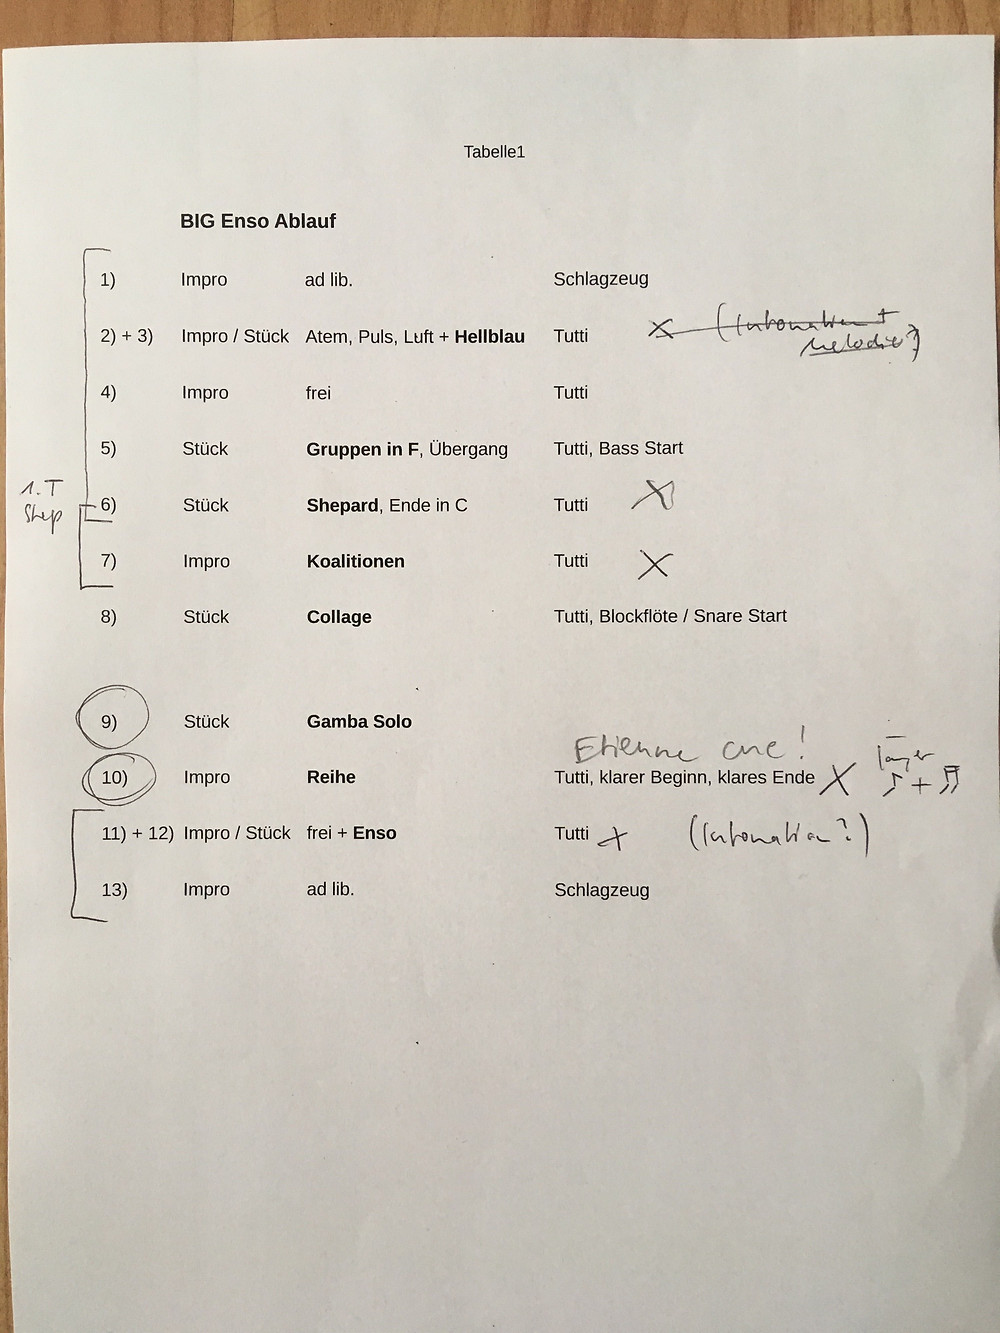 Tabelle1
BIG Enso Ablauf
1) Impro ad lib. Schlagzeug
2) + 3) Impro / Stück Atem, Puls, Luft + Hellblau Tutti (Intonation +
Melodie?)
4) Impro frei Tutti
5) Stück Gruppen in F, Übergang Tutti, Bass Start
1. T
Shep
6) Stück Shepard, Ende in C Tutti X
7) Impro Koalitionen Tutti X
8) Stück Collage Tutti, Blockflöte / Snare Start
9) Stück Gamba Solo
Etienne cue!
10) Impro Reihe Tutti, klarer Beginn, klares Ende X ♪ + ♬
11) + 12) Impro / Stück frei + Enso Tutti X (Intonation?)
13) Impro ad lib. Schlagzeug